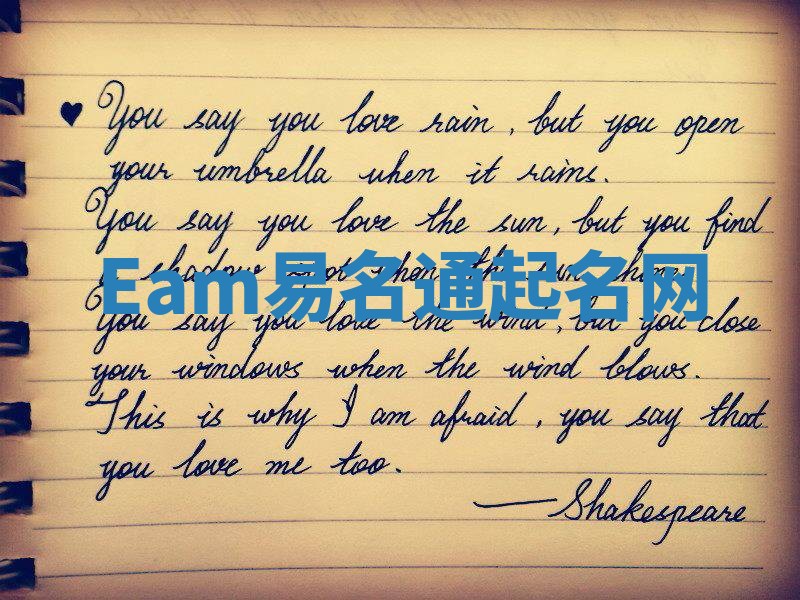 You say you love rain, but you open
your umbrella when it rains.
You say you love the sun, but you find
a shadow spot when the sun shines.
Eam易名通起名网
You say you love the wind, but you close
your windows when the wind blows.
This is why I am afraid, you say that
you love me too.
—Shakespeare